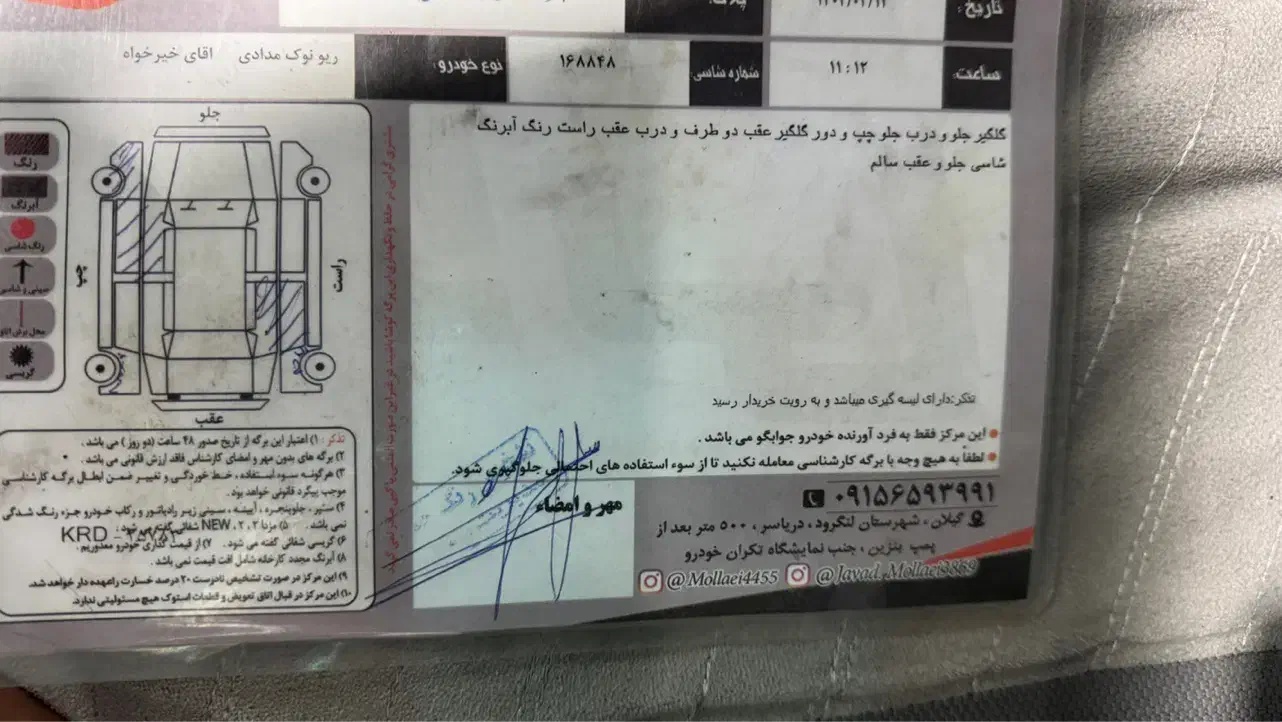 تاریخ:
پلاک:
ساعت:
۱۱:۱۲
شماره شاسی:
۱۶۸۸۴۸
نوع خودرو:
ریو نوک مدادی آقای خیرخواه
گلگیر جلو و درب جلو چپ و دور گلگیر عقب دو طرف و درب عقب راست رنگ آبرنگ
شاسی جلو و عقب سالم
تذکر:دارای لیسه گیری میباشد و به رویت خریدار رسید
این مرکز فقط به فرد آورنده خودرو جوابگو می باشد .
لطفا به هیچ وجه با برگه کارشناسی معامله نکنید تا از سوء استفاده های احتمالی جلوگیری شود.
مهر و امضاء
۰۹۱۵۶۵۹۳۹۹۱
گیلان ، شهرستان لنگرود ، دریاسر ، ۵۰۰ متر بعد از
پمپ بنزین ، جنب نمایشگاه تکران خودرو
@Mollaei4455 @Javad_Mollaei3869
جلو
چپ
راست
عقب
رنگ
آبرنگ
رنگ شاسی
سینی و شاسی
محل برش اتاق
گریسی
تذکر : ۱) اعتبار این برگه از تاریخ صدور ۴۸ ساعت (دو روز) می باشد .
۲) برگه های بدون مهر و امضای کارشناس فاقد ارزش قانونی می باشد .
۳) هرگونه سوء استفاده ، خط خوردگی و تغییر ضمن ابطال برگه کارشناسی
موجب پیگرد قانونی خواهد بود .
۴) ستیر ، جلوپنجره ، آیینه ، سینی زیر رادیاتور و رکاب خودرو جزء رنگ شدگی
نمی باشد . ۵) مزدا ۲ ، ۳ ، NEW شفائی گفته می شود .
۶) گریسی شفائی گفته می شود . ۷) از قیمت گذاری خودرو معذوریم .
۸) آبرنگ مجدد کارخانه شامل افت قیمت نمی باشد .
۹) این مرکز در صورت تشخیص نادرست ۲۰ درصد خسارت را عهده دار خواهد شد.
۱۰) این مرکز در قبال اتاق تعویض و قطعات استوک هیچ مسئولیتی ندارد.
KRD - ۲۵۷۸۳